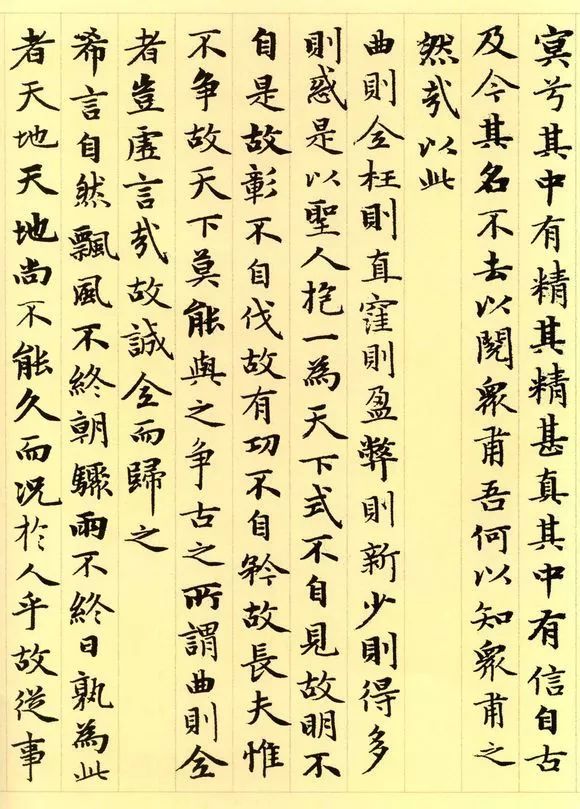 冥兮其中有精其精甚真其中有信自古
及今其名不去以閱衆甫吾何以知衆甫之
然哉以此
曲則全枉則直窪則盈弊則新少則得多
則惑是以聖人抱一為天下式不自見故明不
自是故彰不自伐故有功不自矜故長夫惟
不争故天下莫能與之争古之所謂曲則全
者豈虛言哉故誠全而歸之
希言自然飄風不終朝驟雨不終日孰為此
者天地天地尚不能久而况於人乎故從事